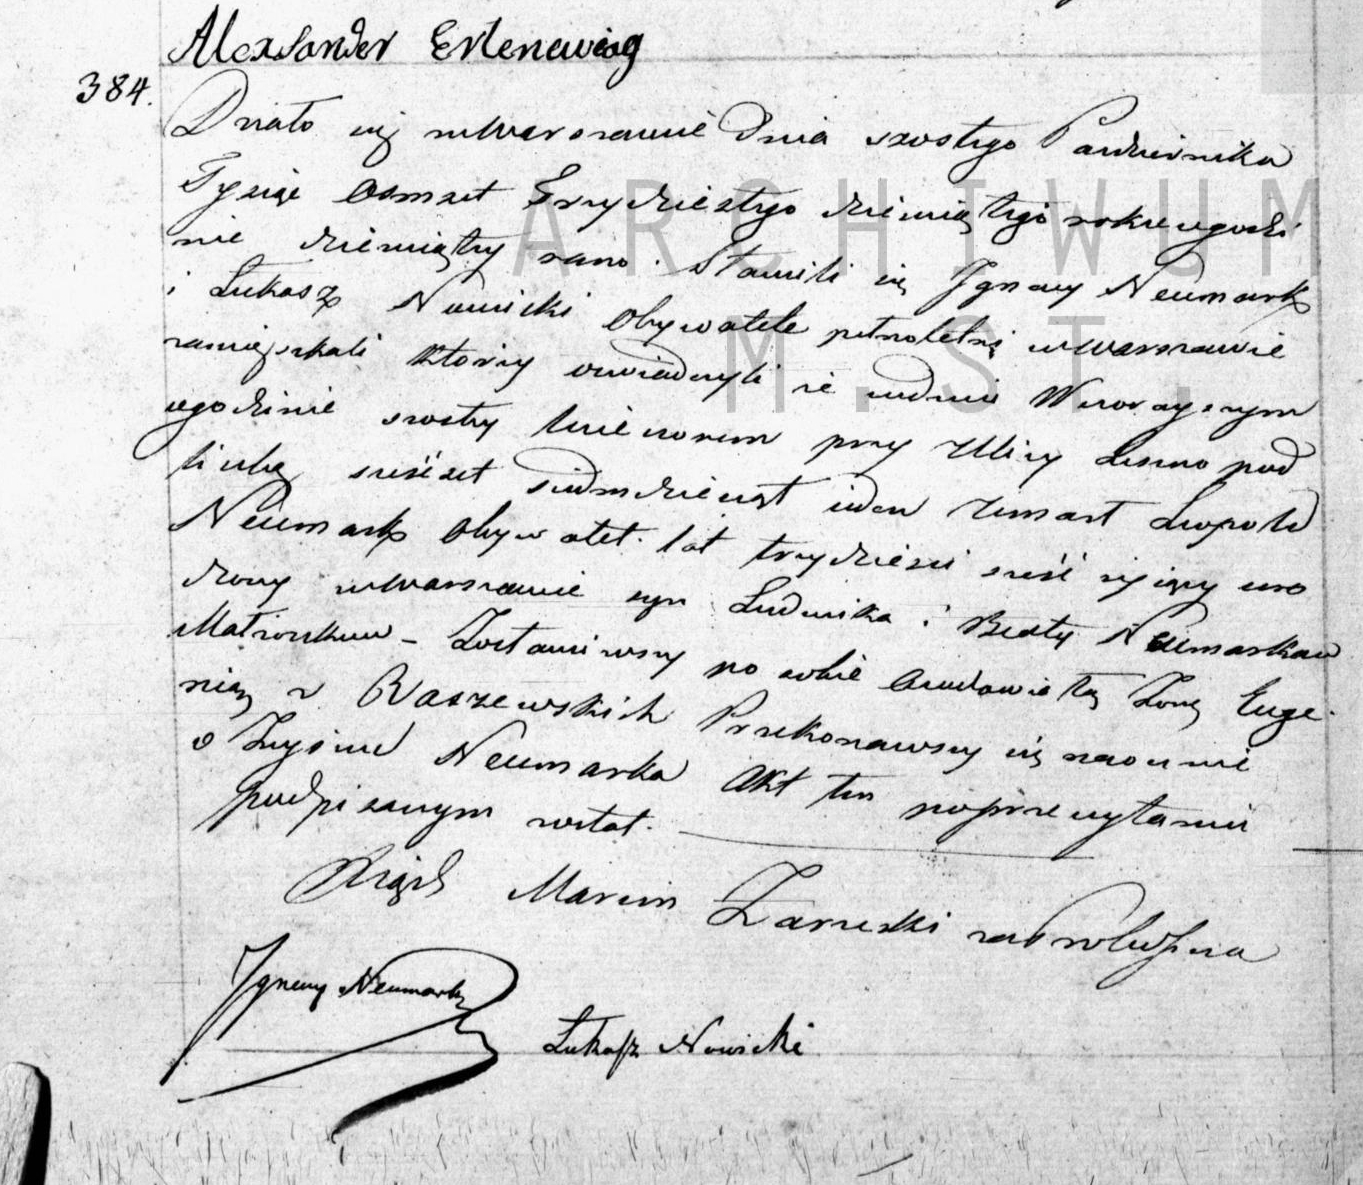 Alexsander Erlenewicz
384.
Działo się w Warszawie Dnia szostego Pazdziernika
Tysiąc Osmset Trzydziestego dziewiątego roku o godzi
nie dziewiąty rano. Stawili się Ignacy Neumark
i Łukasz Nowicki Obywatele pełnoletni w Warszawie
zamięszkali ktorzy oswiadczyli że w dniu Wczorayszym
o godzinie szosty wieczorem przy Ulicy Leszno pod
liczbą sześćset siedmdziesiąt ieden Umarł Leopold
Neumark Obywatel lat trzydzieści sześć maiący uro
dzony w Warszawie syn Ludwika i Beaty Neumarkow
Małżonkow – Zostawiwszy po sobie Owdowiałą Żonę Euge
nią z Raszewskich Przekonawszy się naocznie
o Zeysciu Neumarka Akt ten po przeczytaniu
podpisanym został.
Xiądz Marcin Zarzecki
Ignacy Neumark
Łukasz Nowicki
ARCHIWUM
M. ST.